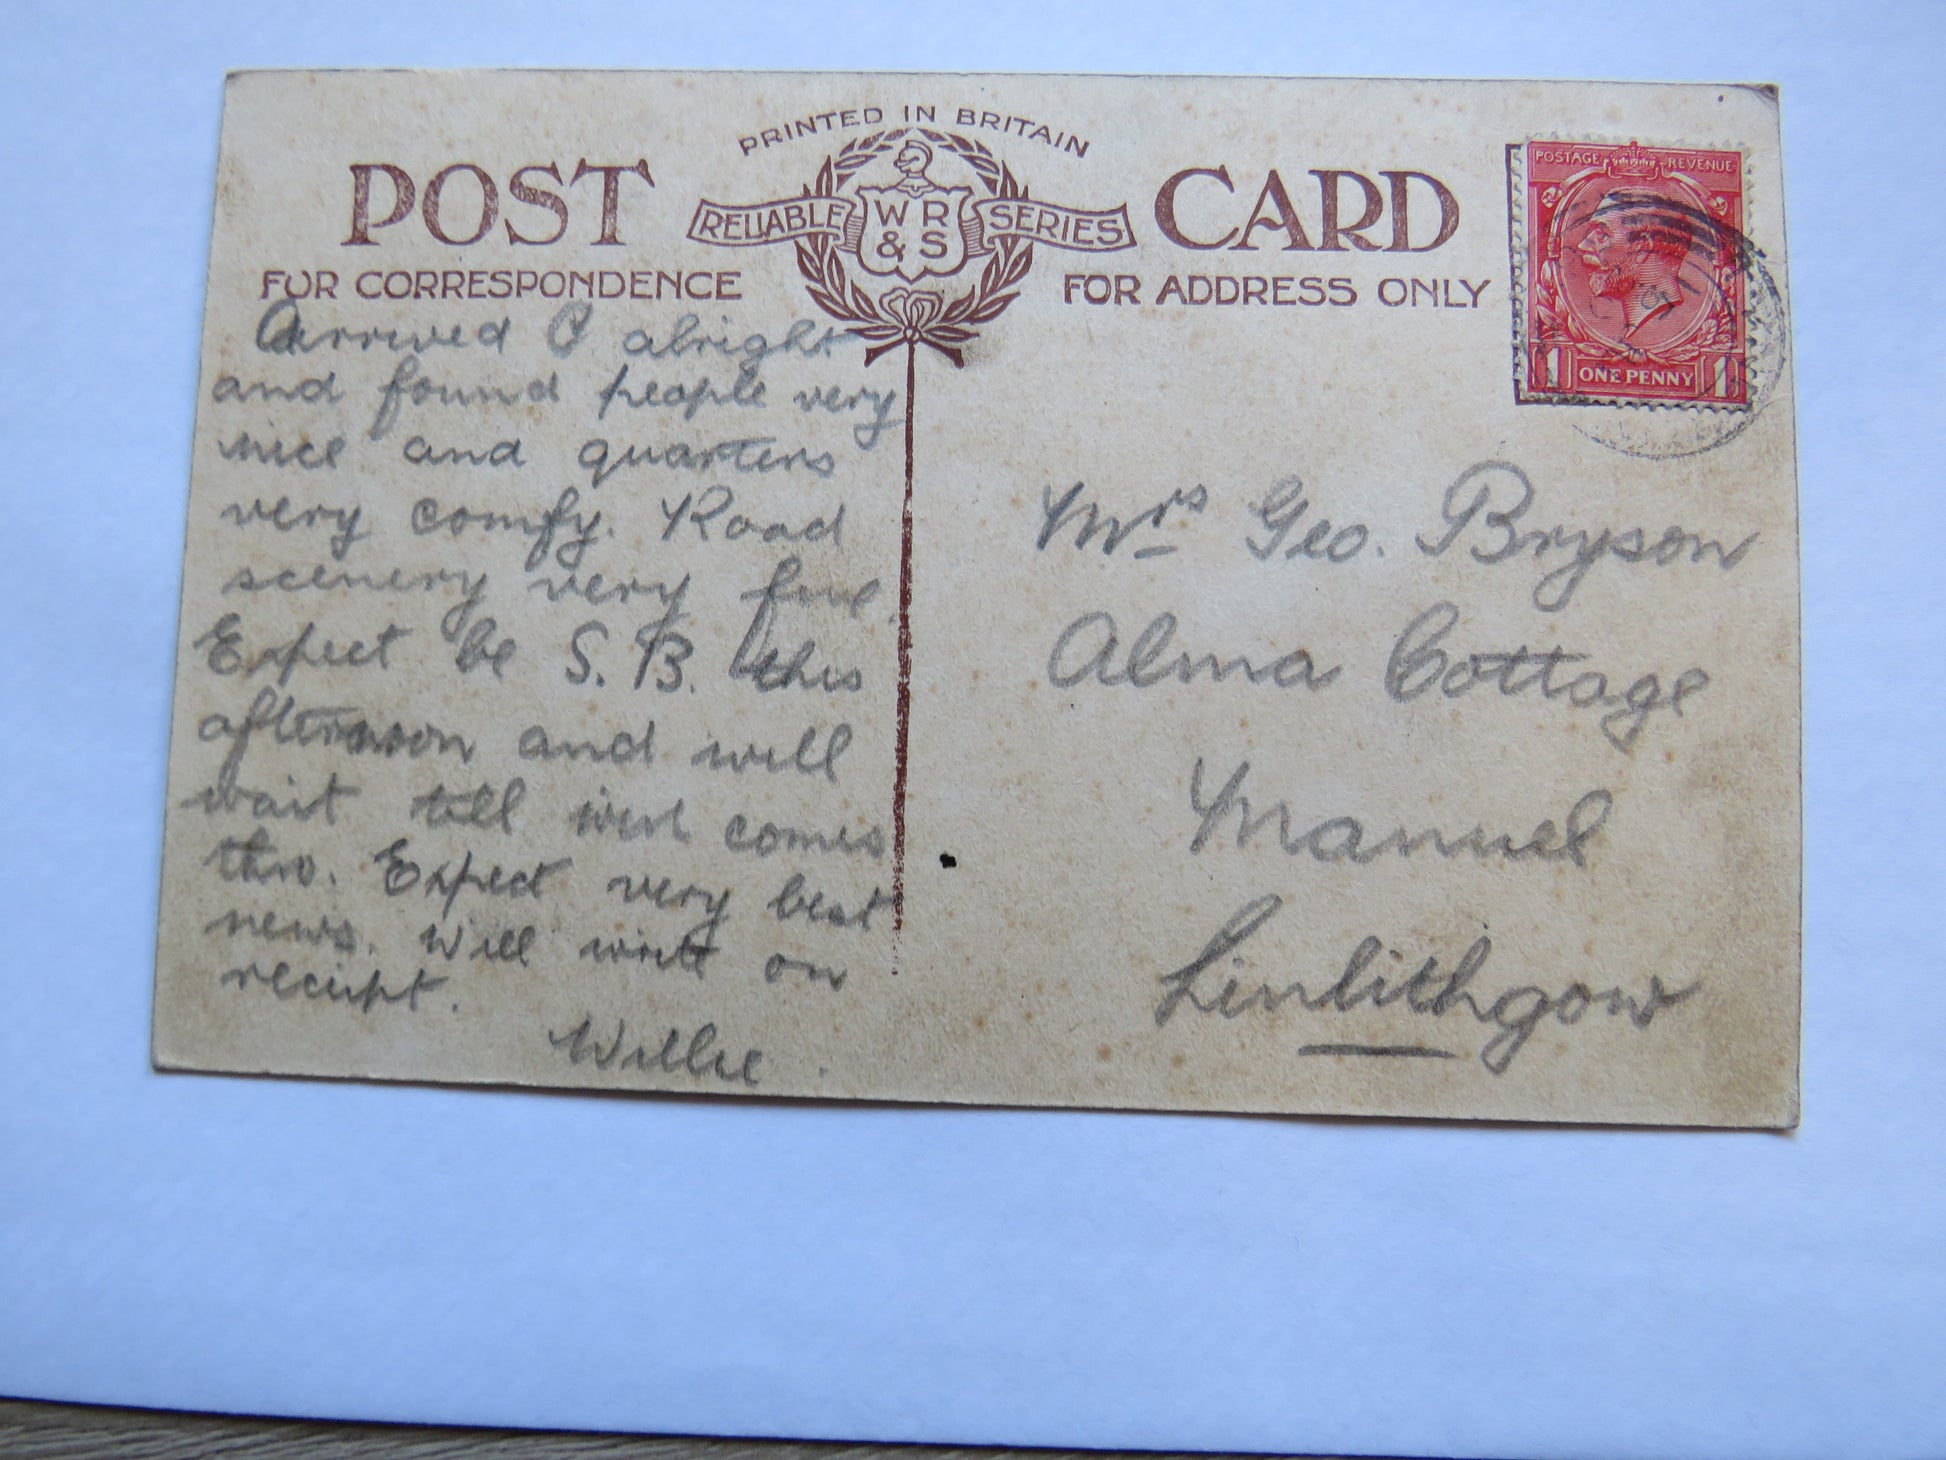 PRINTED IN BRITAIN
POST CARD
RELIABLE WR & S SERIES
FOR CORRESPONDENCE
FOR ADDRESS ONLY
POSTAGE REVENUE
1 ONE PENNY 1
Arrived C. alright
and found people very
nice and quarters
very comfy. Road
scenery very fine.
Expect be S.B. this
afternoon and will
wait till wire comes
thro. Expect very best
news. Will write on
receipt.
Willie.
Mrs Geo. Bryson
Alma Cottage
Manuel
Linlithgow